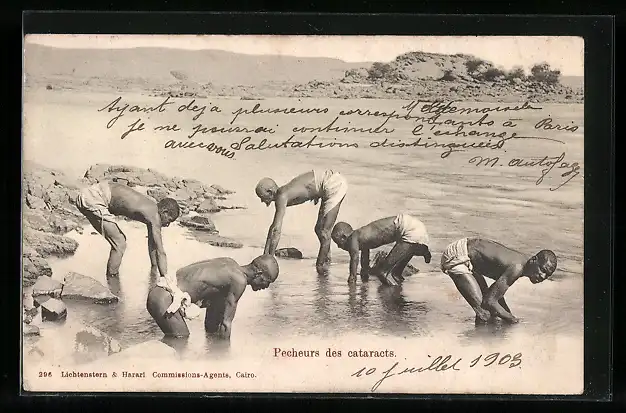 Mademoiselle
Ayant deja plusieurs correspondants a Paris
je ne pourai continuer l'echange
avec vous Salutations distinguées
M.
Pecheurs des cataracts.
296 Lichtenstern & Harari Commissions-Agents, Cairo.
10 juillet 1903